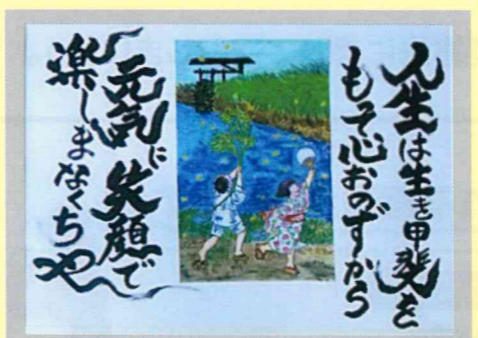 人生は生き甲斐を
もって心おのずから
元気に笑顔で
楽しまなくちゃ